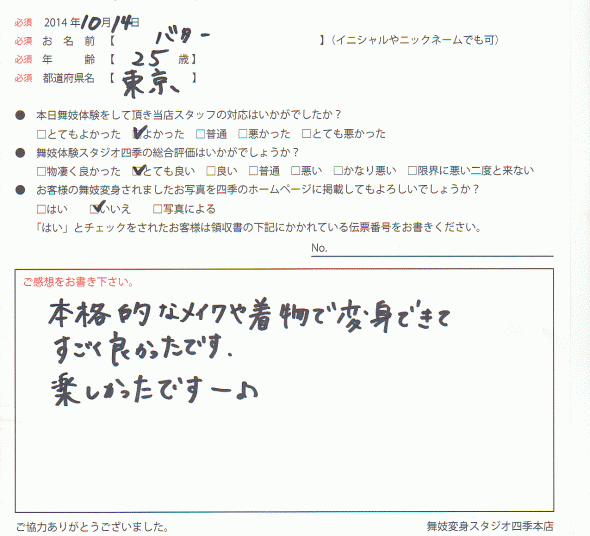 必須 2014年10月14日
必須 お名前【 バター 】(イニシャルやニックネームでも可)
必須 年齢【 25 歳】
必須 都道府県名【 東京、 】
● 本日舞妓体験をして頂き当店スタッフの対応はいかがでしたか？
□とてもよかった ☑よかった □普通 □悪かった □とても悪かった
● 舞妓体験スタジオ四季の総合評価はいかがでしょうか？
□物凄く良かった ☑とても良い □良い □普通 □悪い □かなり悪い □限界に悪い二度と来ない
● お客様の舞妓変身されましたお写真を四季のホームページに掲載してもよろしいでしょうか？
□はい ☑いいえ □写真による
「はい」とチェックをされたお客様は領収書の下記にかかれている伝票番号をお書きください。
No.
ご感想をお書き下さい。
本格的なメイクや着物で変身できて
すごく良かったです.
楽しかったですー♪
ご協力ありがとうございました。 舞妓変身スタジオ四季本店